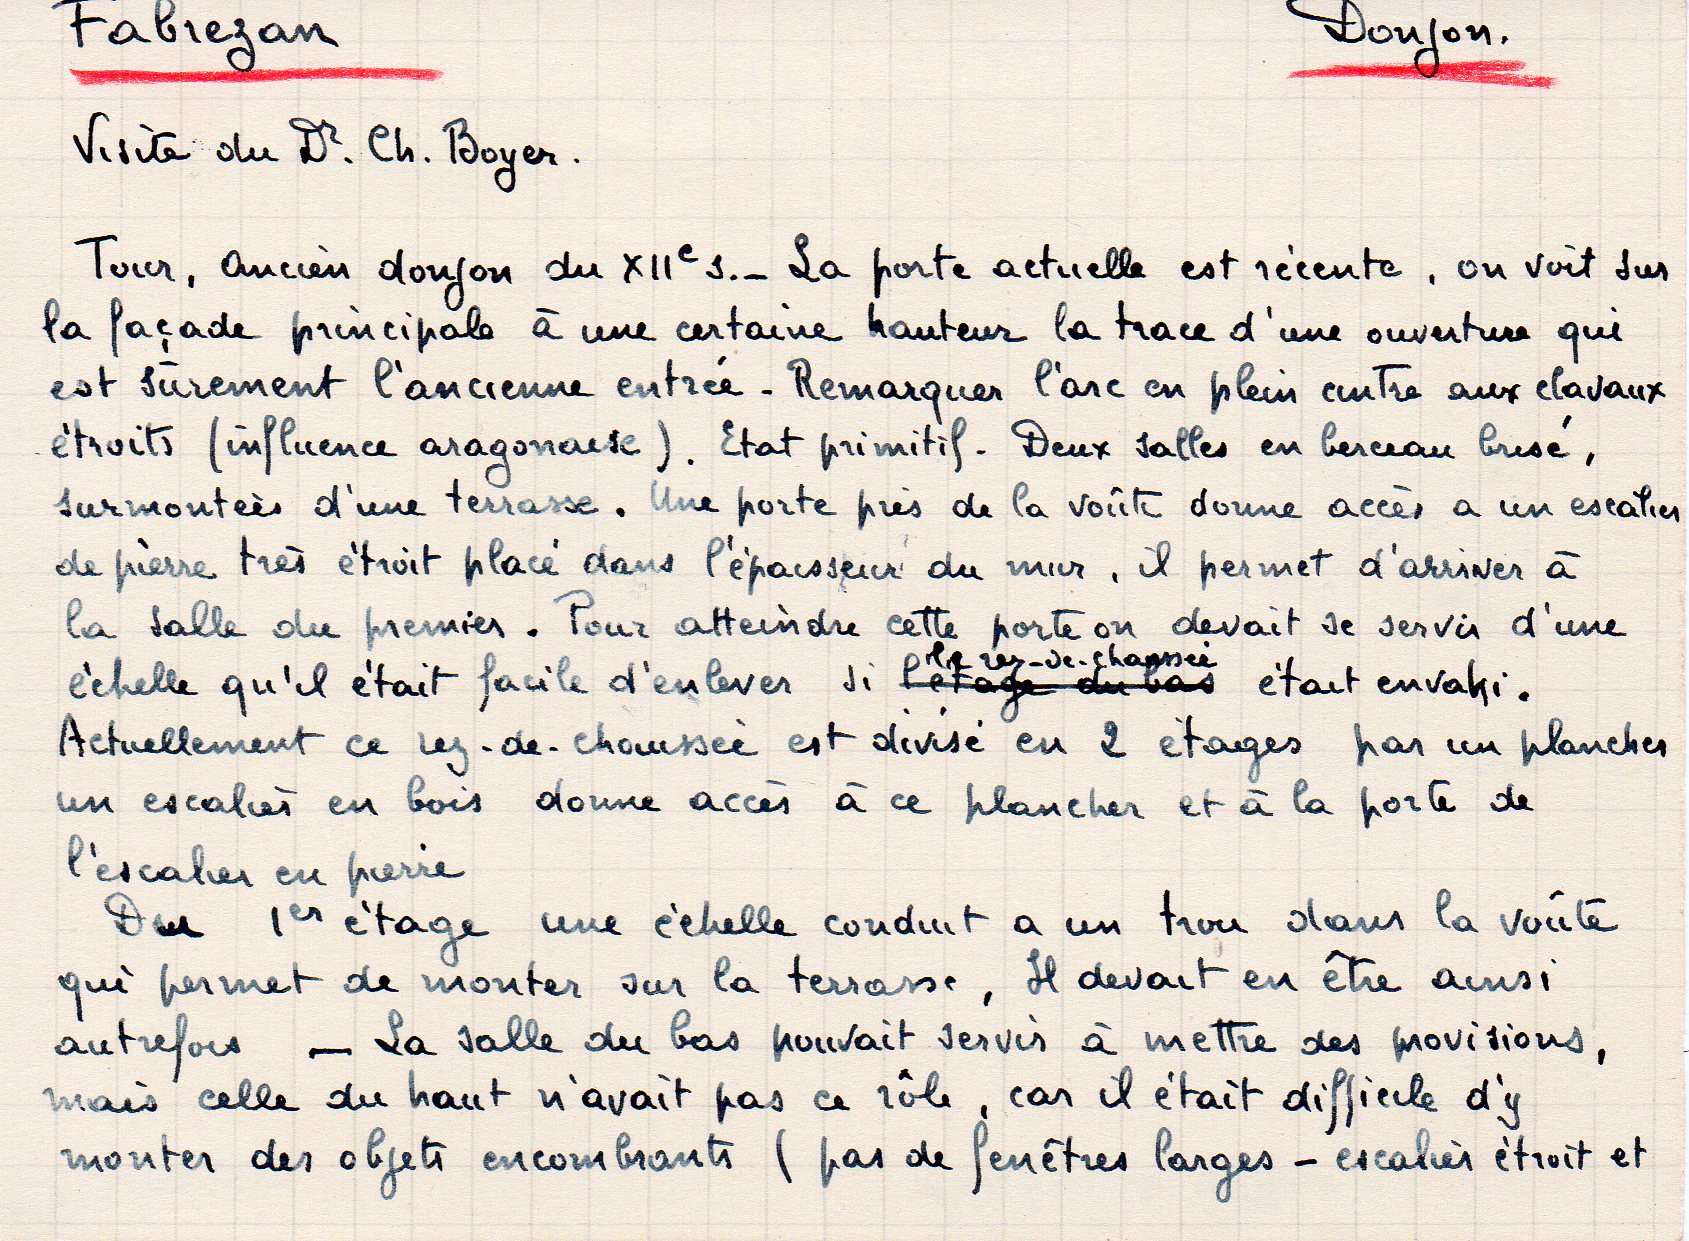 Fabrezan Donjon.
Visite du Dr. Ch. Boyer.
Tour, ancien donjon du XIIe s. _ La porte actuelle est récente, on voit sur
la façade principale à une certaine hauteur la trace d'une ouverture qui
est sûrement l'ancienne entrée - Remarquer l'arc en plein cintre aux claveaux
étroits (influence aragonaise). Etat primitif - Deux salles en berceau brisé,
surmontées d'une terrasse. Une porte près de la voûte donne accès a un escalier
de pierre très étroit placé dans l'épaisseur du mur, il permet d'arriver à
la salle du premier. Pour atteindre cette porte on devait se servir d'une
le rez-de-chaussée
échelle qu'il était facile d'enlever si l'étage du bas était envahi.
Actuellement ce rez-de-chaussée est divisé en 2 étages par un plancher
un escalier en bois donne accès à ce plancher et à la porte de
l'escalier en pierre
Du 1er étage une échelle conduit a un trou dans la voûte
qui permet de monter sur la terrasse, Il devait en être ainsi
autrefois _ La salle du bas pouvait servir à mettre des provisions,
mais celle du haut n'avait pas ce rôle, car il était difficile d'y
monter des objets encombrants (pas de fenêtres larges - escalier étroit et